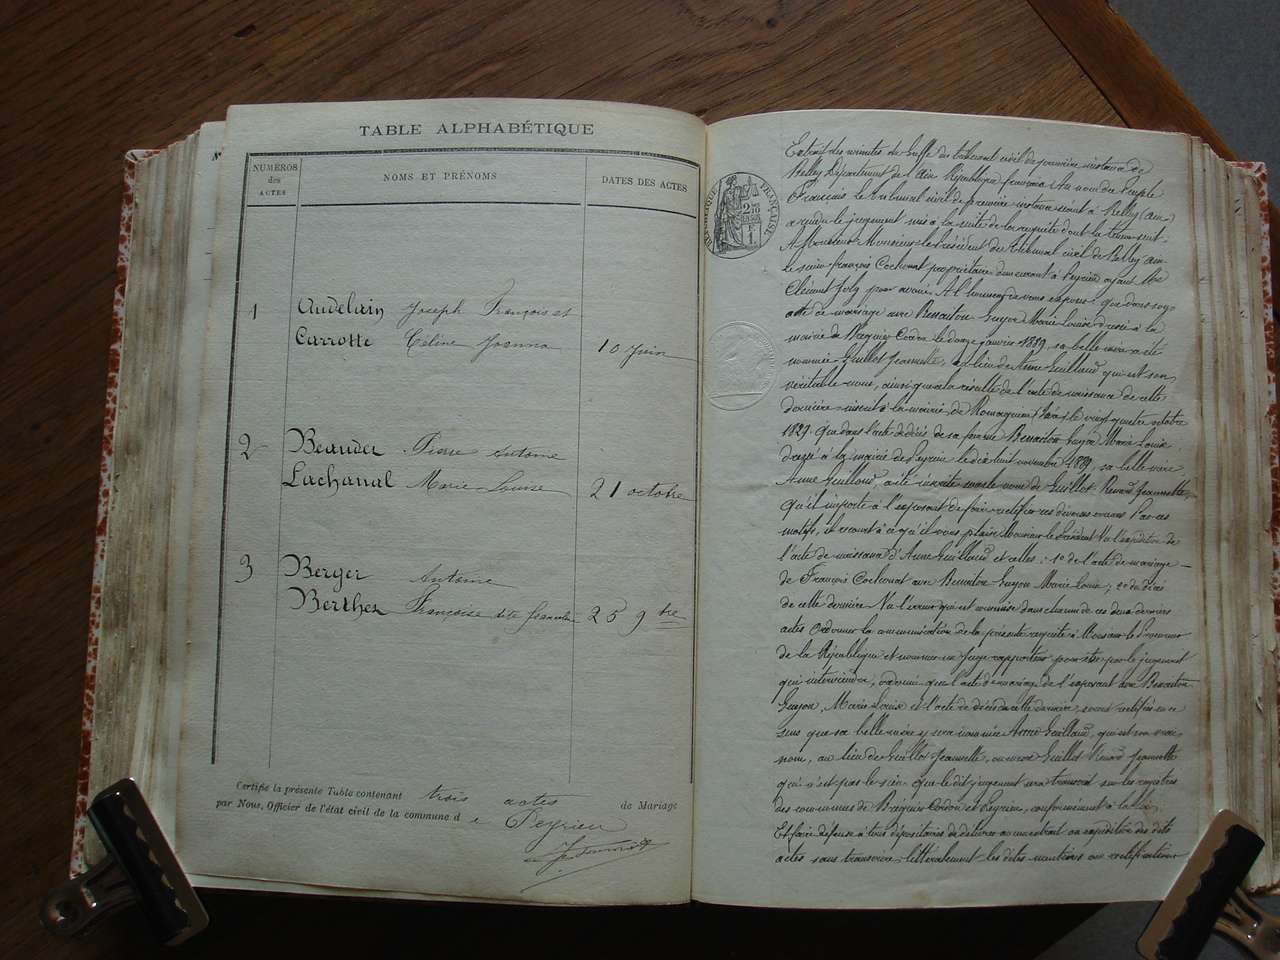 TABLE ALPHABÉTIQUE
NUMÉROS
des
ACTES
NOMS ET PRÉNOMS
DATES DES ACTES
1 Audelain Joseph François et
Carrotte Céline Joanna 10 Juin
2 Beauder Pierre Antoine
Lachanal Marie Louise 21 octobre
3 Berger Antoine
Berthet Françoise dite 25 9bre
Certifié la présente Table contenant trois actes de Mariage
par Nous, Officier de l'état civil de la commune de Peyrieu
RÉPUBLIQUE FRANÇAISE
Extrait des minutes du Greffe du tribunal civil de première instance de
Belley Département de l'Ain République française Au nom du Peuple
Français le tribunal civil de première instance séant à Belley (Ain)
a rendu le jugement mis à la suite de la requête dont la teneur suit
A Monsieur Monsieur le Président du tribunal civil de Belley Ain
Le sieur françois Cochonat propriétaire demeurant à Peyrieu ayant Me
Clément Joly pour avoué. A l'honneur de vous exposer que dans son
acte de mariage avec Bessaiton Guyon Marie Louise dressé à la
mairie de Brégnier Cordon le douze janvier 1889, sa belle mère a été
nommée Guillot Jeannette, au lieu de Anne Guillaud qui est son
véritable nom, ainsi que cela résulte de l'acte de naissance de cette
dernière inscrit à la mairie de Romagnieu Isère le vingt quatre octobre
1829. Que dans l'acte de décès de sa femme Bessaiton Guyon Marie Louise
dressé à la mairie de Peyrieu le dix huit novembre 1889, sa belle mère
Anne Guillaud a été inscrite sous le nom de Guillot Renard Jeannette
Qu'il importe à l'exposant de faire rectifier ces diverses erreurs Par ces
motifs, il recourt à ce qu'il vous plaise Monsieur le Président Vu l'expédition de
l'acte de naissance d'Anne Guillaud et celles: 1o de l'acte de mariage
de François Cochonat avec Bessaiton Guyon Marie Louise; 2o du décès
de cette dernière Vu l'erreur qui est commise dans chacun de ces deux derniers
actes Ordonner la communication de la présente requête à Monsieur le Procureur
de la République et nommer un Juge rapporteur pour être par le jugement
qui interviendra, ordonné que l'acte de mariage de l'exposant avec Bessaiton
Guyon, Marie Louise et l'acte de décès de cette dernière, seront rectifiés en ce
sens que sa belle mère y sera nommée Anne Guillaud, qui est son vrai
nom, au lieu de Guillot Jeannette, ou encore Guillot Renard Jeannette
qui n'est pas le sien que le dit jugement sera transcrit sur les registres
des communes de Brégnier Cordon et Peyrieu, conformément à la loi
Et faire défense à tous dépositaires de délivrer aucun extrait ou expédition des dits
actes sans transcrire littéralement les dites mentions ou rectifications